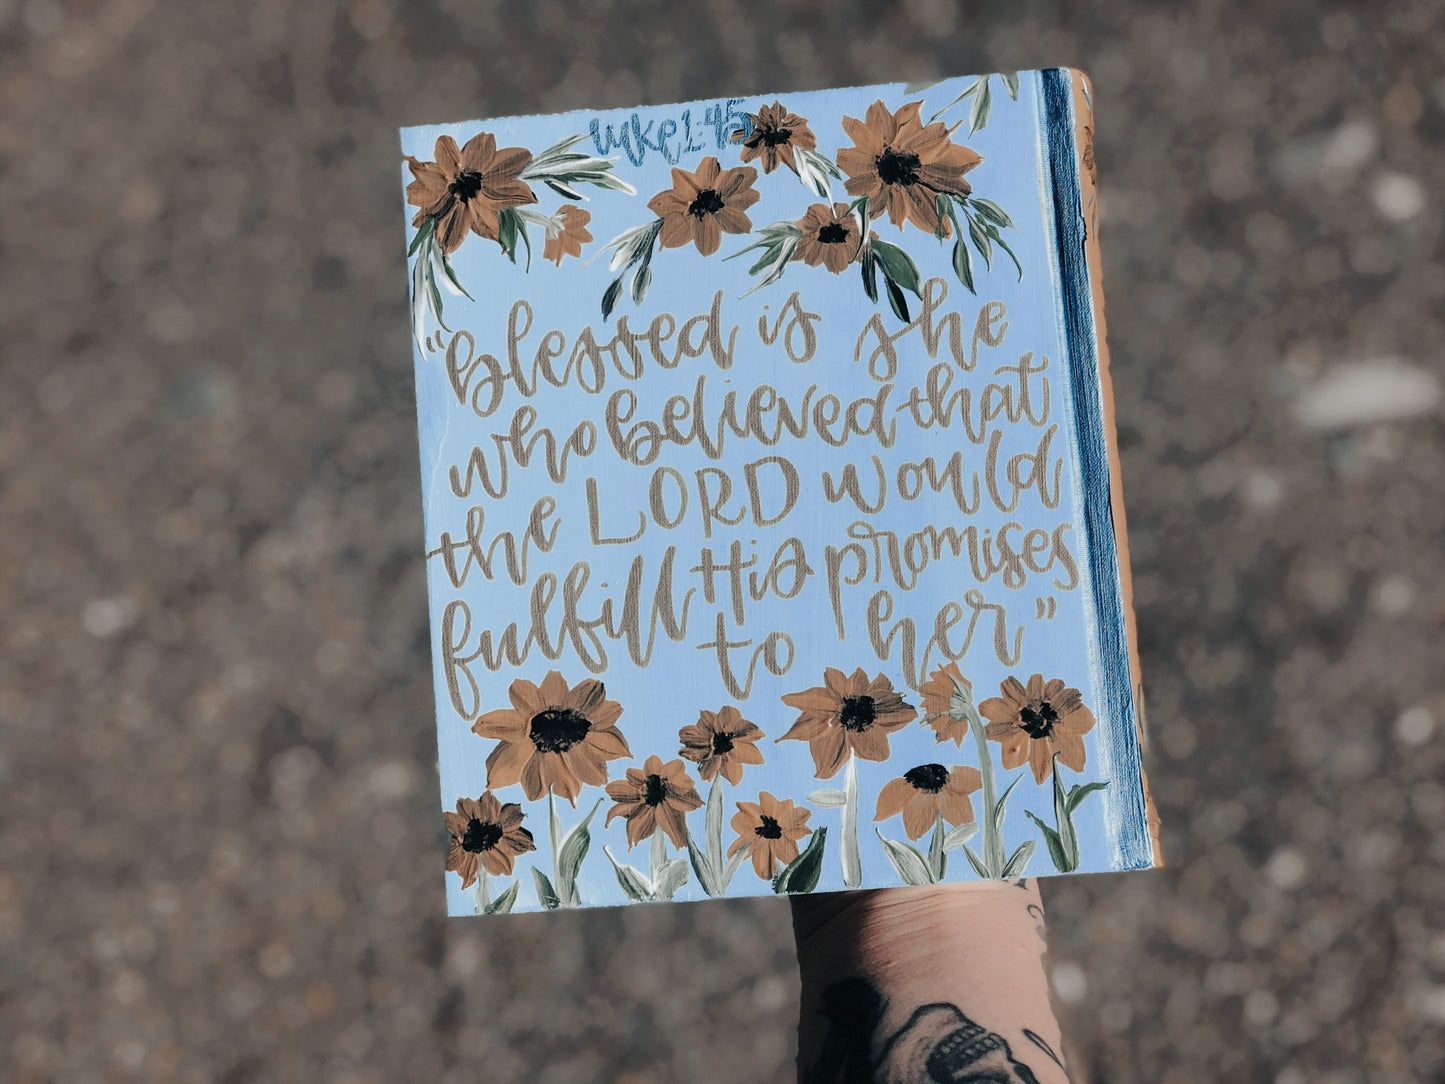 luke 1:45
"blessed is she
who believed that
the LORD would
fulfill His promises
to her"